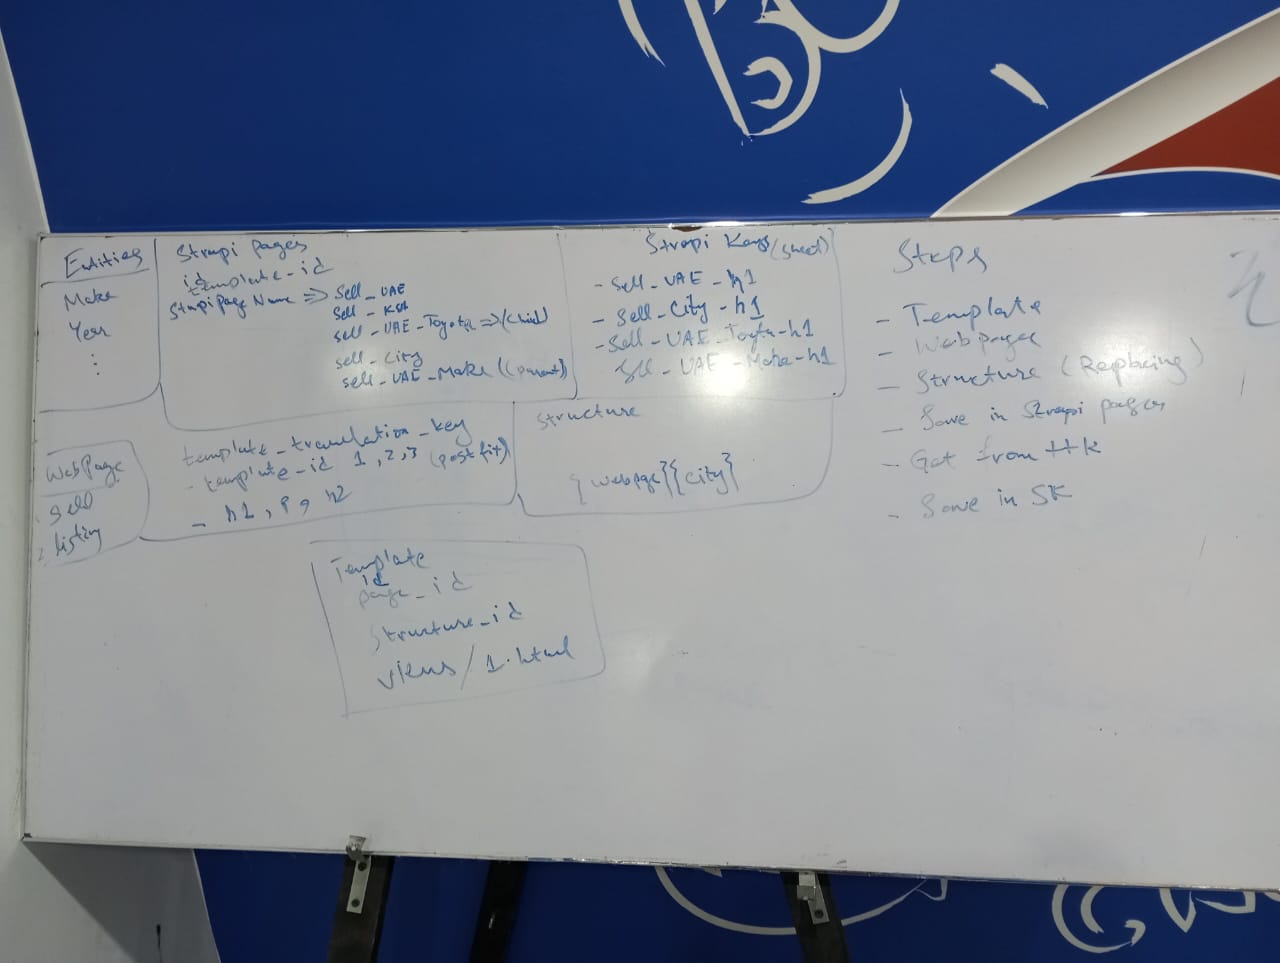 Entities
Make
Year
Strapi pages
id
template_id
Strapi page Name => Sell_UAE
Sell_KSA
sell_UAE_Toyota => (child)
sell_City
sell_UAE_Make ((parent)
Strapi Keys (sheet)
- Sell_UAE_h1
- Sell_City_h1
- Sell_UAE_Toyta-h1
Sell_UAE_Make-h1
Steps
- Template
- Webpages
- Structure (Replacing)
- Save in Strapi pages
- Get from ttk
- Save in SK
Webpage
Sell
listing
template_translation_key
- template_id 1,2,3 (postfix)
- h1, P, h2
Structure
{webpage}{city}
Template
id
page_id
Structure_id
views/1.html